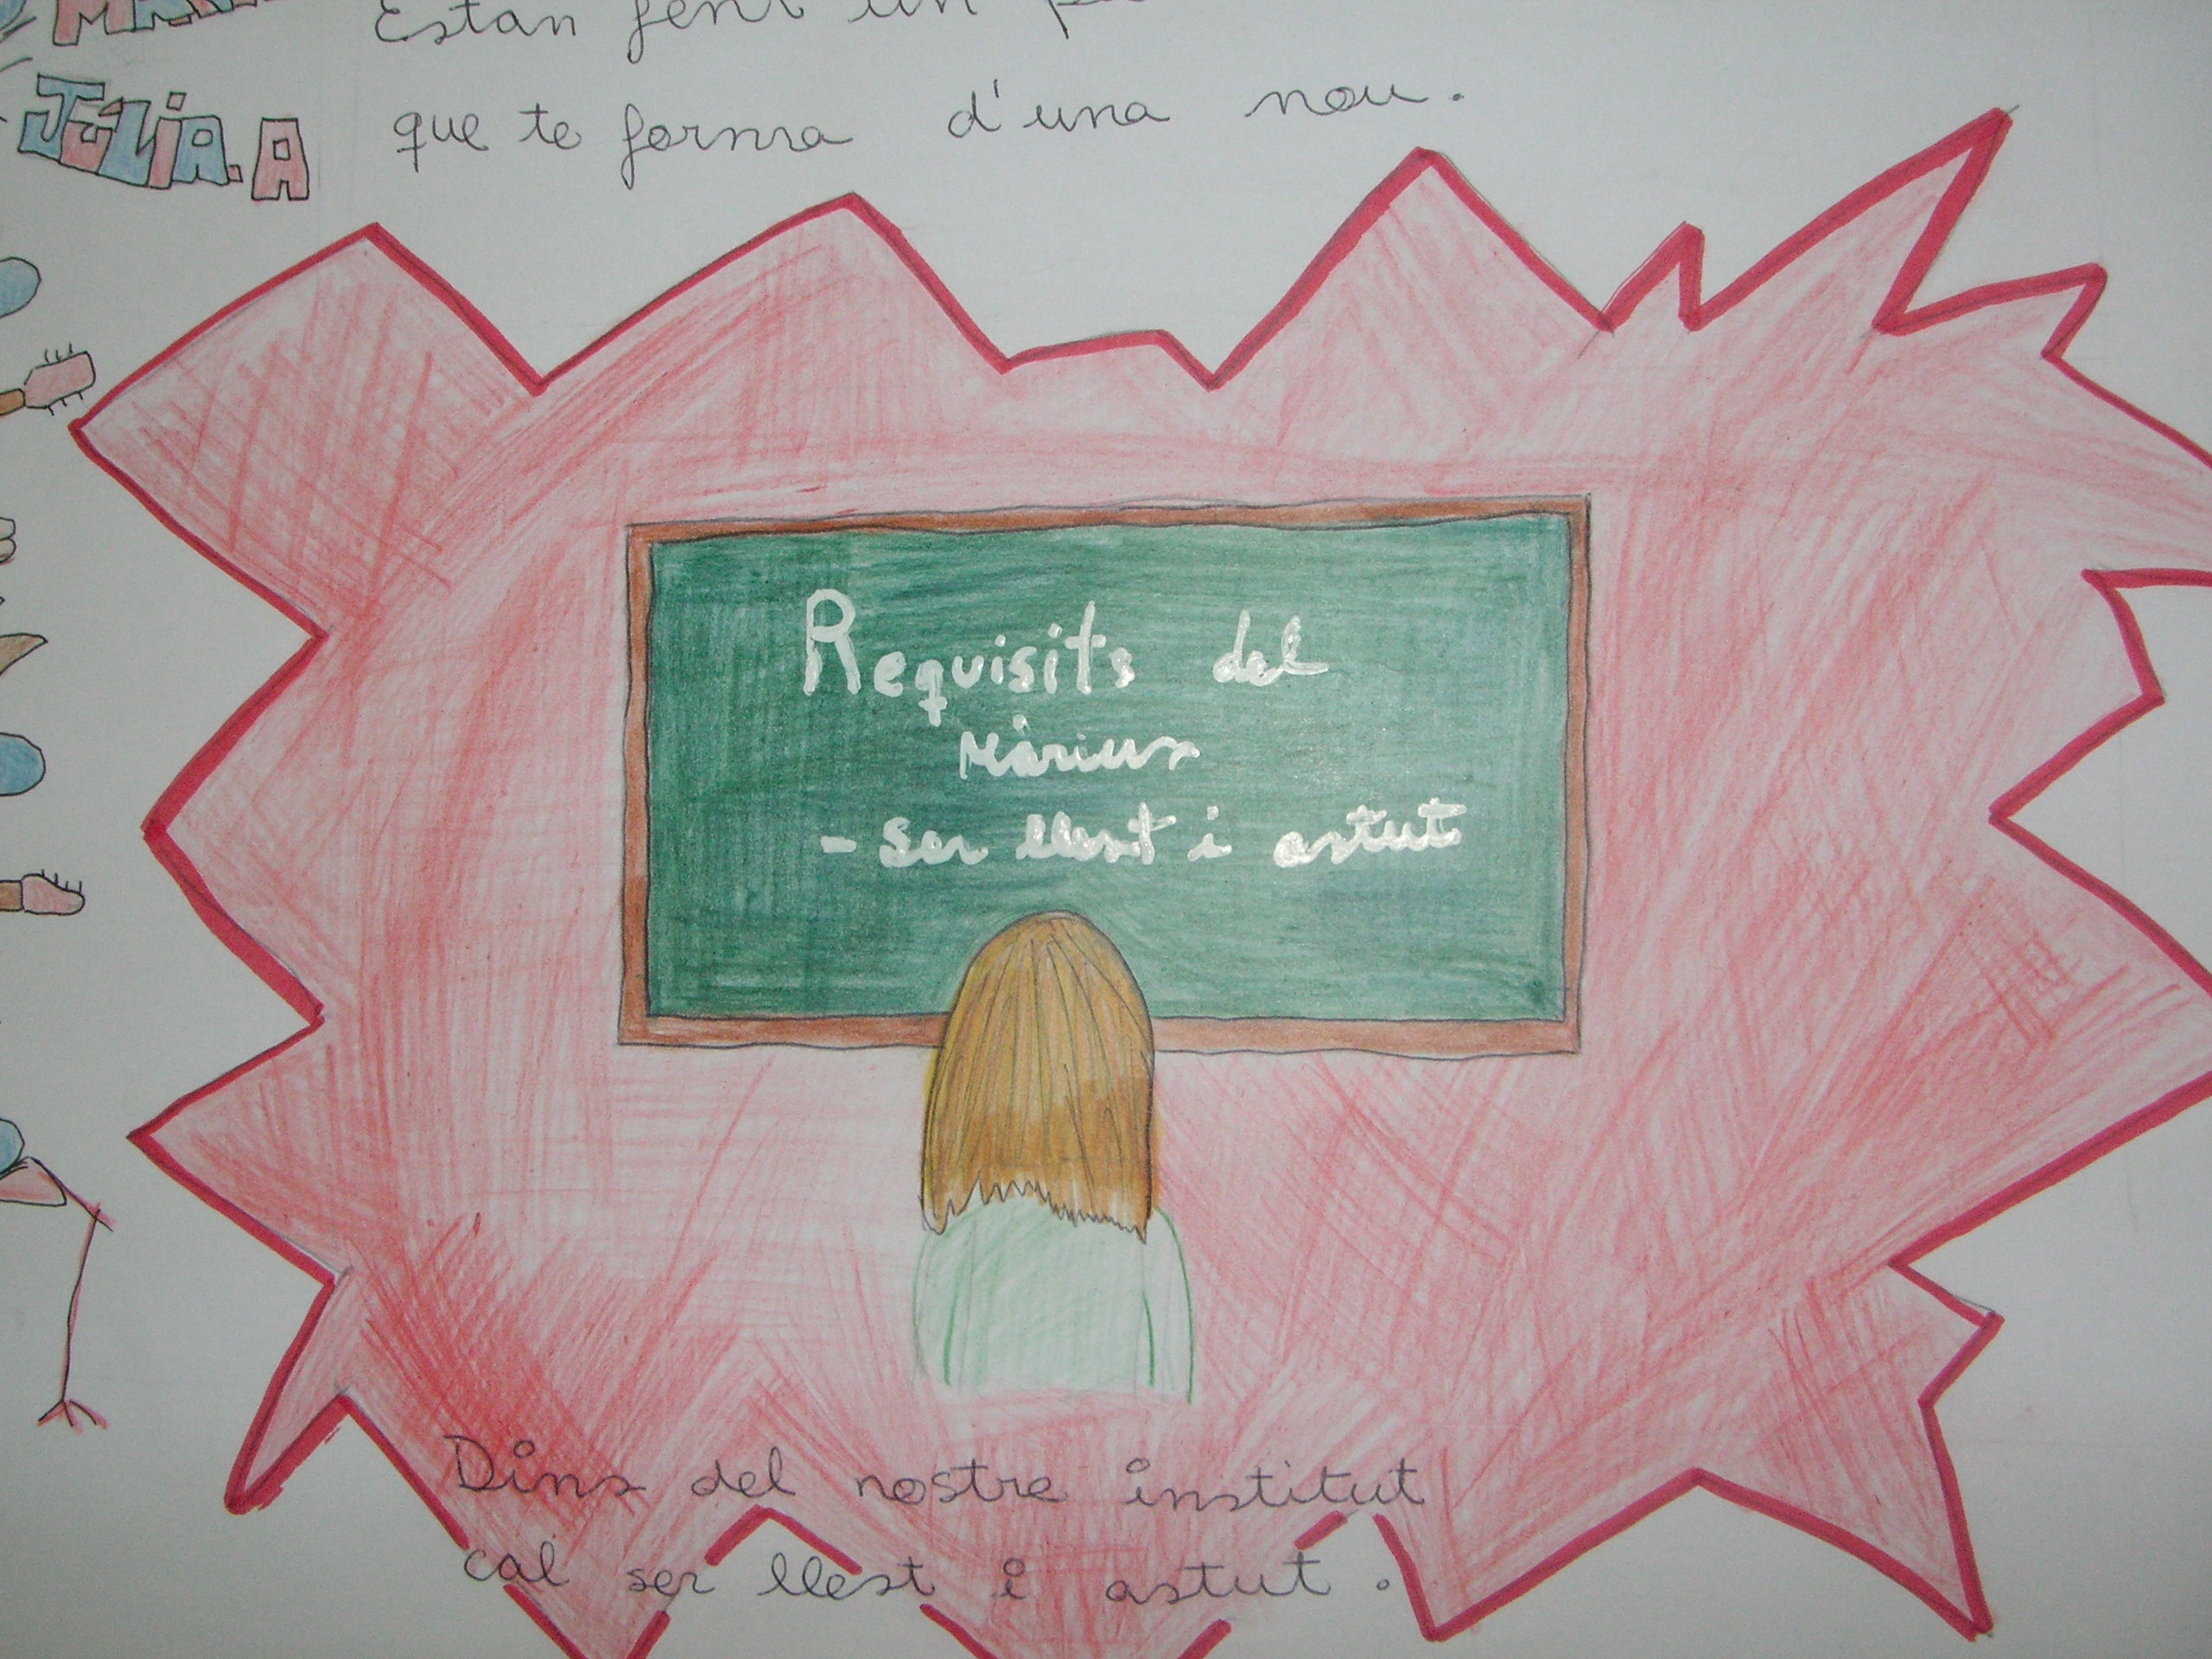 Estan fent un
JÚLIA.A
que te forma d'una nou.
Requisits del
Màrius
- Ser llest i astut
Dins del nostre institut
cal ser llest i astut.